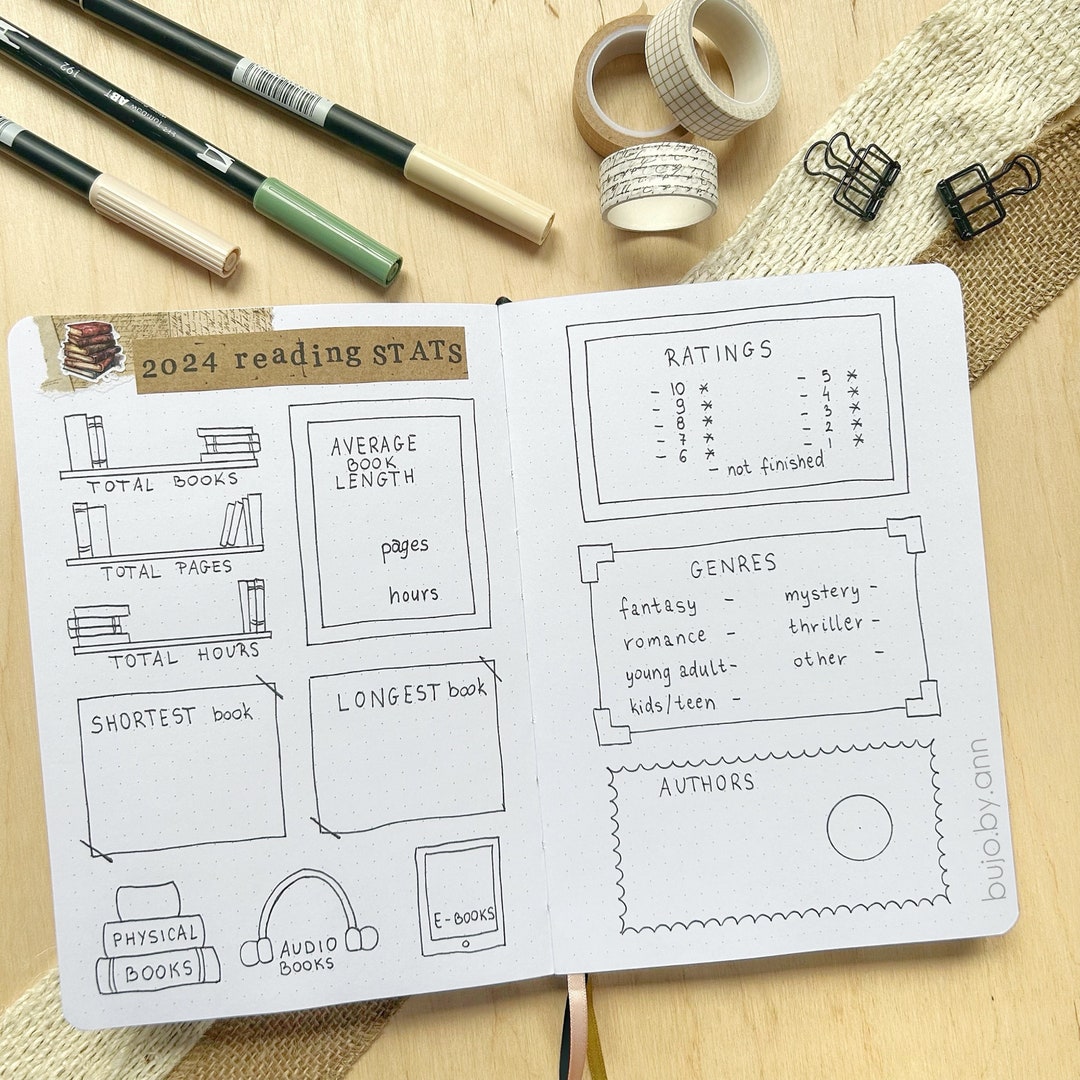 192
Tombow ABT
2024 reading STATS
TOTAL BOOKS
TOTAL PAGES
TOTAL HOURS
AVERAGE
BOOK
LENGTH
pages
hours
SHORTEST book
LONGEST book
PHYSICAL
BOOKS
AUDIO
BOOKS
E-BOOKS
RATINGS
- 10 *
- 9 *
- 8 *
- 7 *
- 6 *
- 5 *
- 4 *
- 3 *
- 2 *
- 1 *
- not finished
GENRES
fantasy -
romance -
young adult-
kids/teen -
mystery -
thriller -
other -
AUTHORS
bujo.by.ann